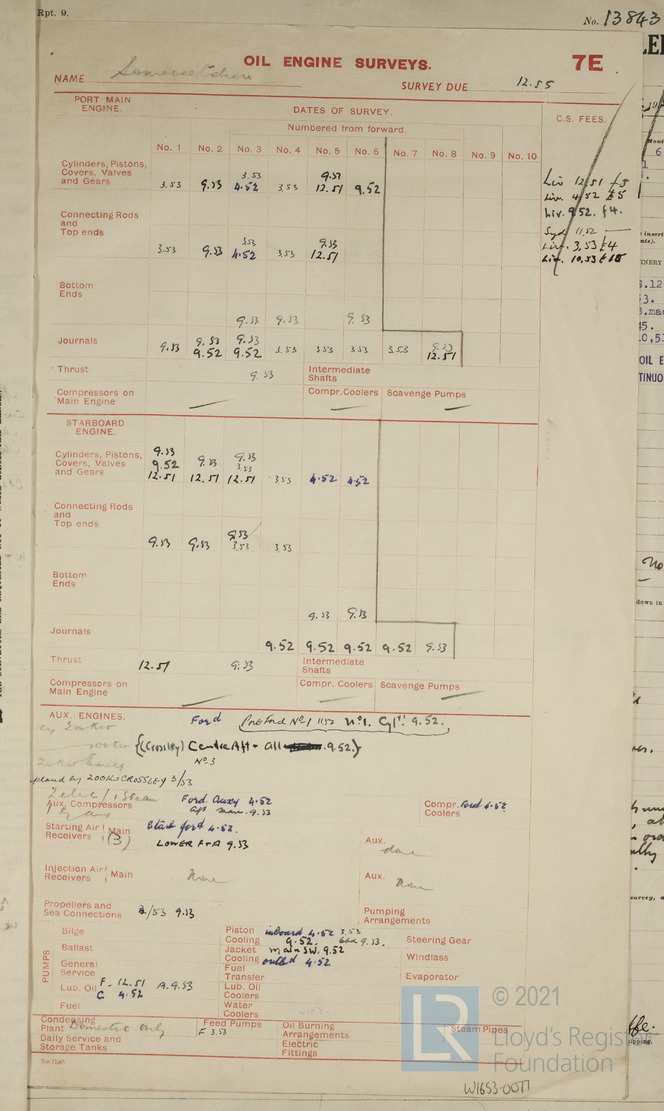 Rpt. 9.
No. 13843
OIL ENGINE SURVEYS. 7E
NAME Somersetshire SURVEY DUE 12.55
PORT MAIN ENGINE. DATES OF SURVEY. C.S. FEES.
Numbered from forward.
No. 1 No. 2 No. 3 No. 4 No. 5 No. 6 No. 7 No. 8 No. 9 No. 10
Cylinders, Pistons, 3.53 9.53
Covers, Valves
and Gears 3.53 9.53 4.52 3.53 12.51 9.52
Liv 12.51 £5
Liv. 4.52 £5
Liv. 9.52. £4.
Syd 11.52 —
Liv. 3.53 £4
Liv. 10.53 £15
Connecting Rods
and 3.53 9.53
Top ends 3.53 9.53 4.52 3.53 12.51
Bottom
Ends
9.53 9.53 9.53
9.53 9.53 9.53
Journals 9.53 9.52 9.52 3.53 3.53 3.53 3.53 12.51
Thrust 9.53 Intermediate
Shafts
Compressors on Compr. Coolers Scavenge Pumps
Main Engine
STARBOARD
ENGINE.
Cylinders, Pistons, 9.53 9.53
Covers, Valves 9.52 9.53 3.53
and Gears 12.51 12.51 12.51 3.53 4.52 4.52
Connecting Rods
and
Top ends 9.53
9.53 9.53 3.53 3.53
Bottom
Ends
9.53 9.53
Journals 9.52 9.52 9.52 9.52 9.53
Thrust 12.51 9.53 Intermediate
Shafts
Compressors on Compr. Coolers Scavenge Pumps
Main Engine
AUX. ENGINES. Ford Port Ford No 1 11.52 No 1. Cyl 9.52.
(Crosley) Centre Aft - all 9.52.
No 3
by 200 Kw CROSSLEY 3/53
2 elec / 1 Steam
Aux. Compressors Ford Auxy 4.52 Compr. Ford 4.52
Aft man. 9.53 Coolers
Starting Air Main Starb ford 4.52. Aux.
Receivers (3) LOWER F+A 9.53
Injection Air Main None Aux. None
Receivers
Propellers and Pumping
Sea Connections 3/53 9.53 Arrangements
PUMPS
Bilge Piston inboard 4.52 3.53
Cooling 9.52. 9.53. Steering Gear
Ballast Jacket main SW. 9.52
General Cooling outbd 4.52 Windlass
Service Fuel
Transfer Evaporator
Lub. Oil F - 12.51 A. 9.53 Lub. Oil
C 4.52 Coolers
Fuel Water
Coolers
Condensing Domestic only Feed Pumps Oil Burning Steam Pipes
Plant F 3.53 Arrangements
Daily Service and Electric
Storage Tanks Fittings
© 2021
LR
Lloyd's Register
Foundation
W1653-0077